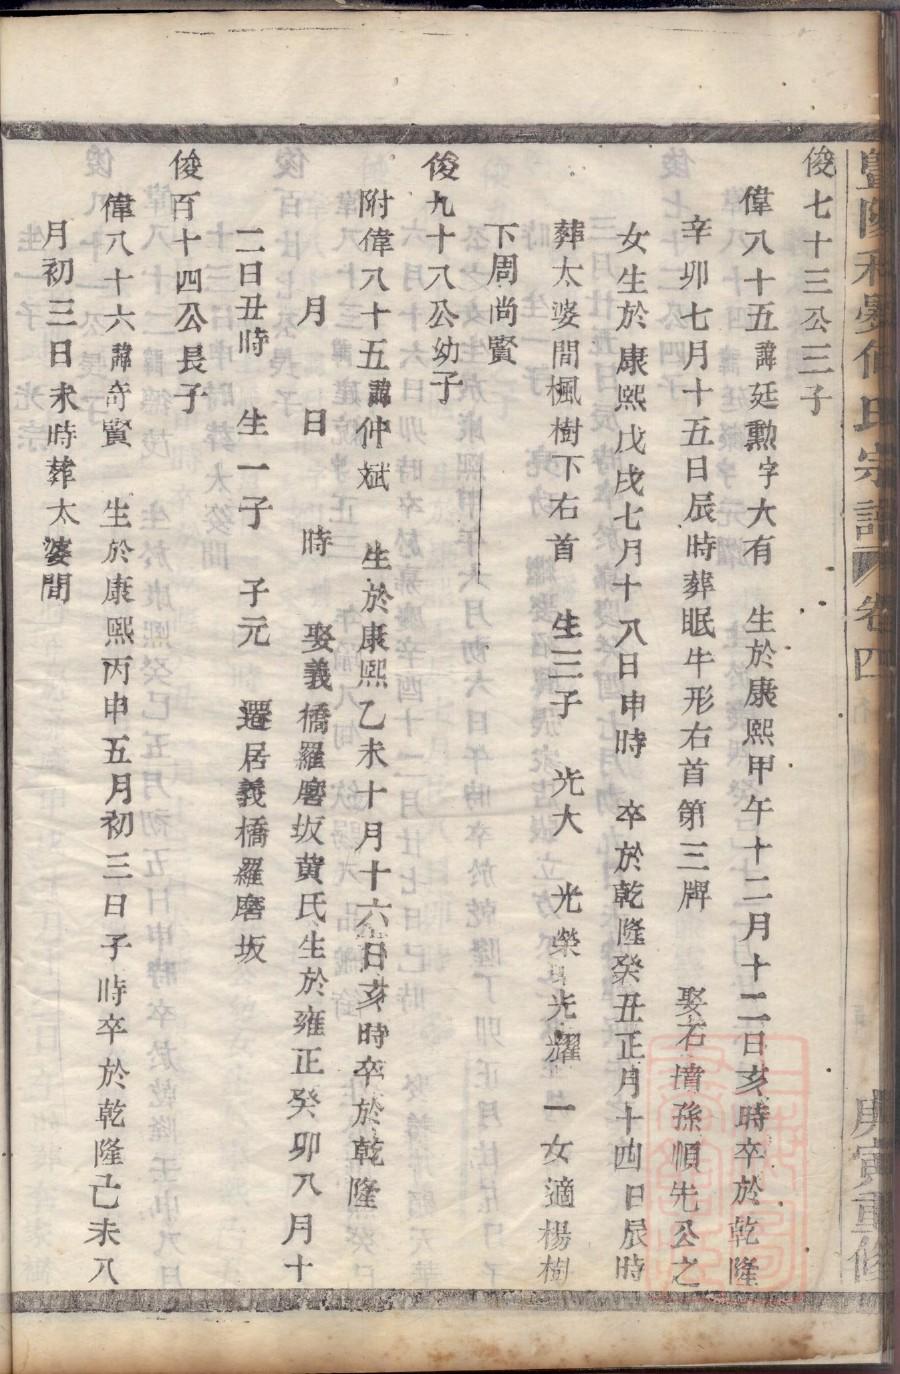 暨陽和㬎何氏宗譜 卷四 庚寅重修
俊七十三公三子
偉八十五諱廷勲字大有 生於康熙甲午十二月十二日亥時卒於乾隆
辛卯七月十五日辰時葬眠牛形右首第三牌 娶石墳孫順先公之
女生於康熙戊戌七月十八日申時 卒於乾隆癸丑正月十四日辰時
葬太婆間楓樹下右首 生三子 光大 光榮 光耀 一女適楊樹
下周尚賢
俊九十八公幼子
附偉八十五諱仲斌 生於康熙乙未十月十六日亥時卒於乾隆
月 日 時 娶義橋羅磨坂黄氏生於雍正癸卯八月十
二日丑時 生一子 子元 遷居義橋羅磨坂
俊百十四公長子
偉八十六諱奇賢 生於康熙丙申五月初三日子時卒於乾隆己未八
月初三日未時葬太婆間